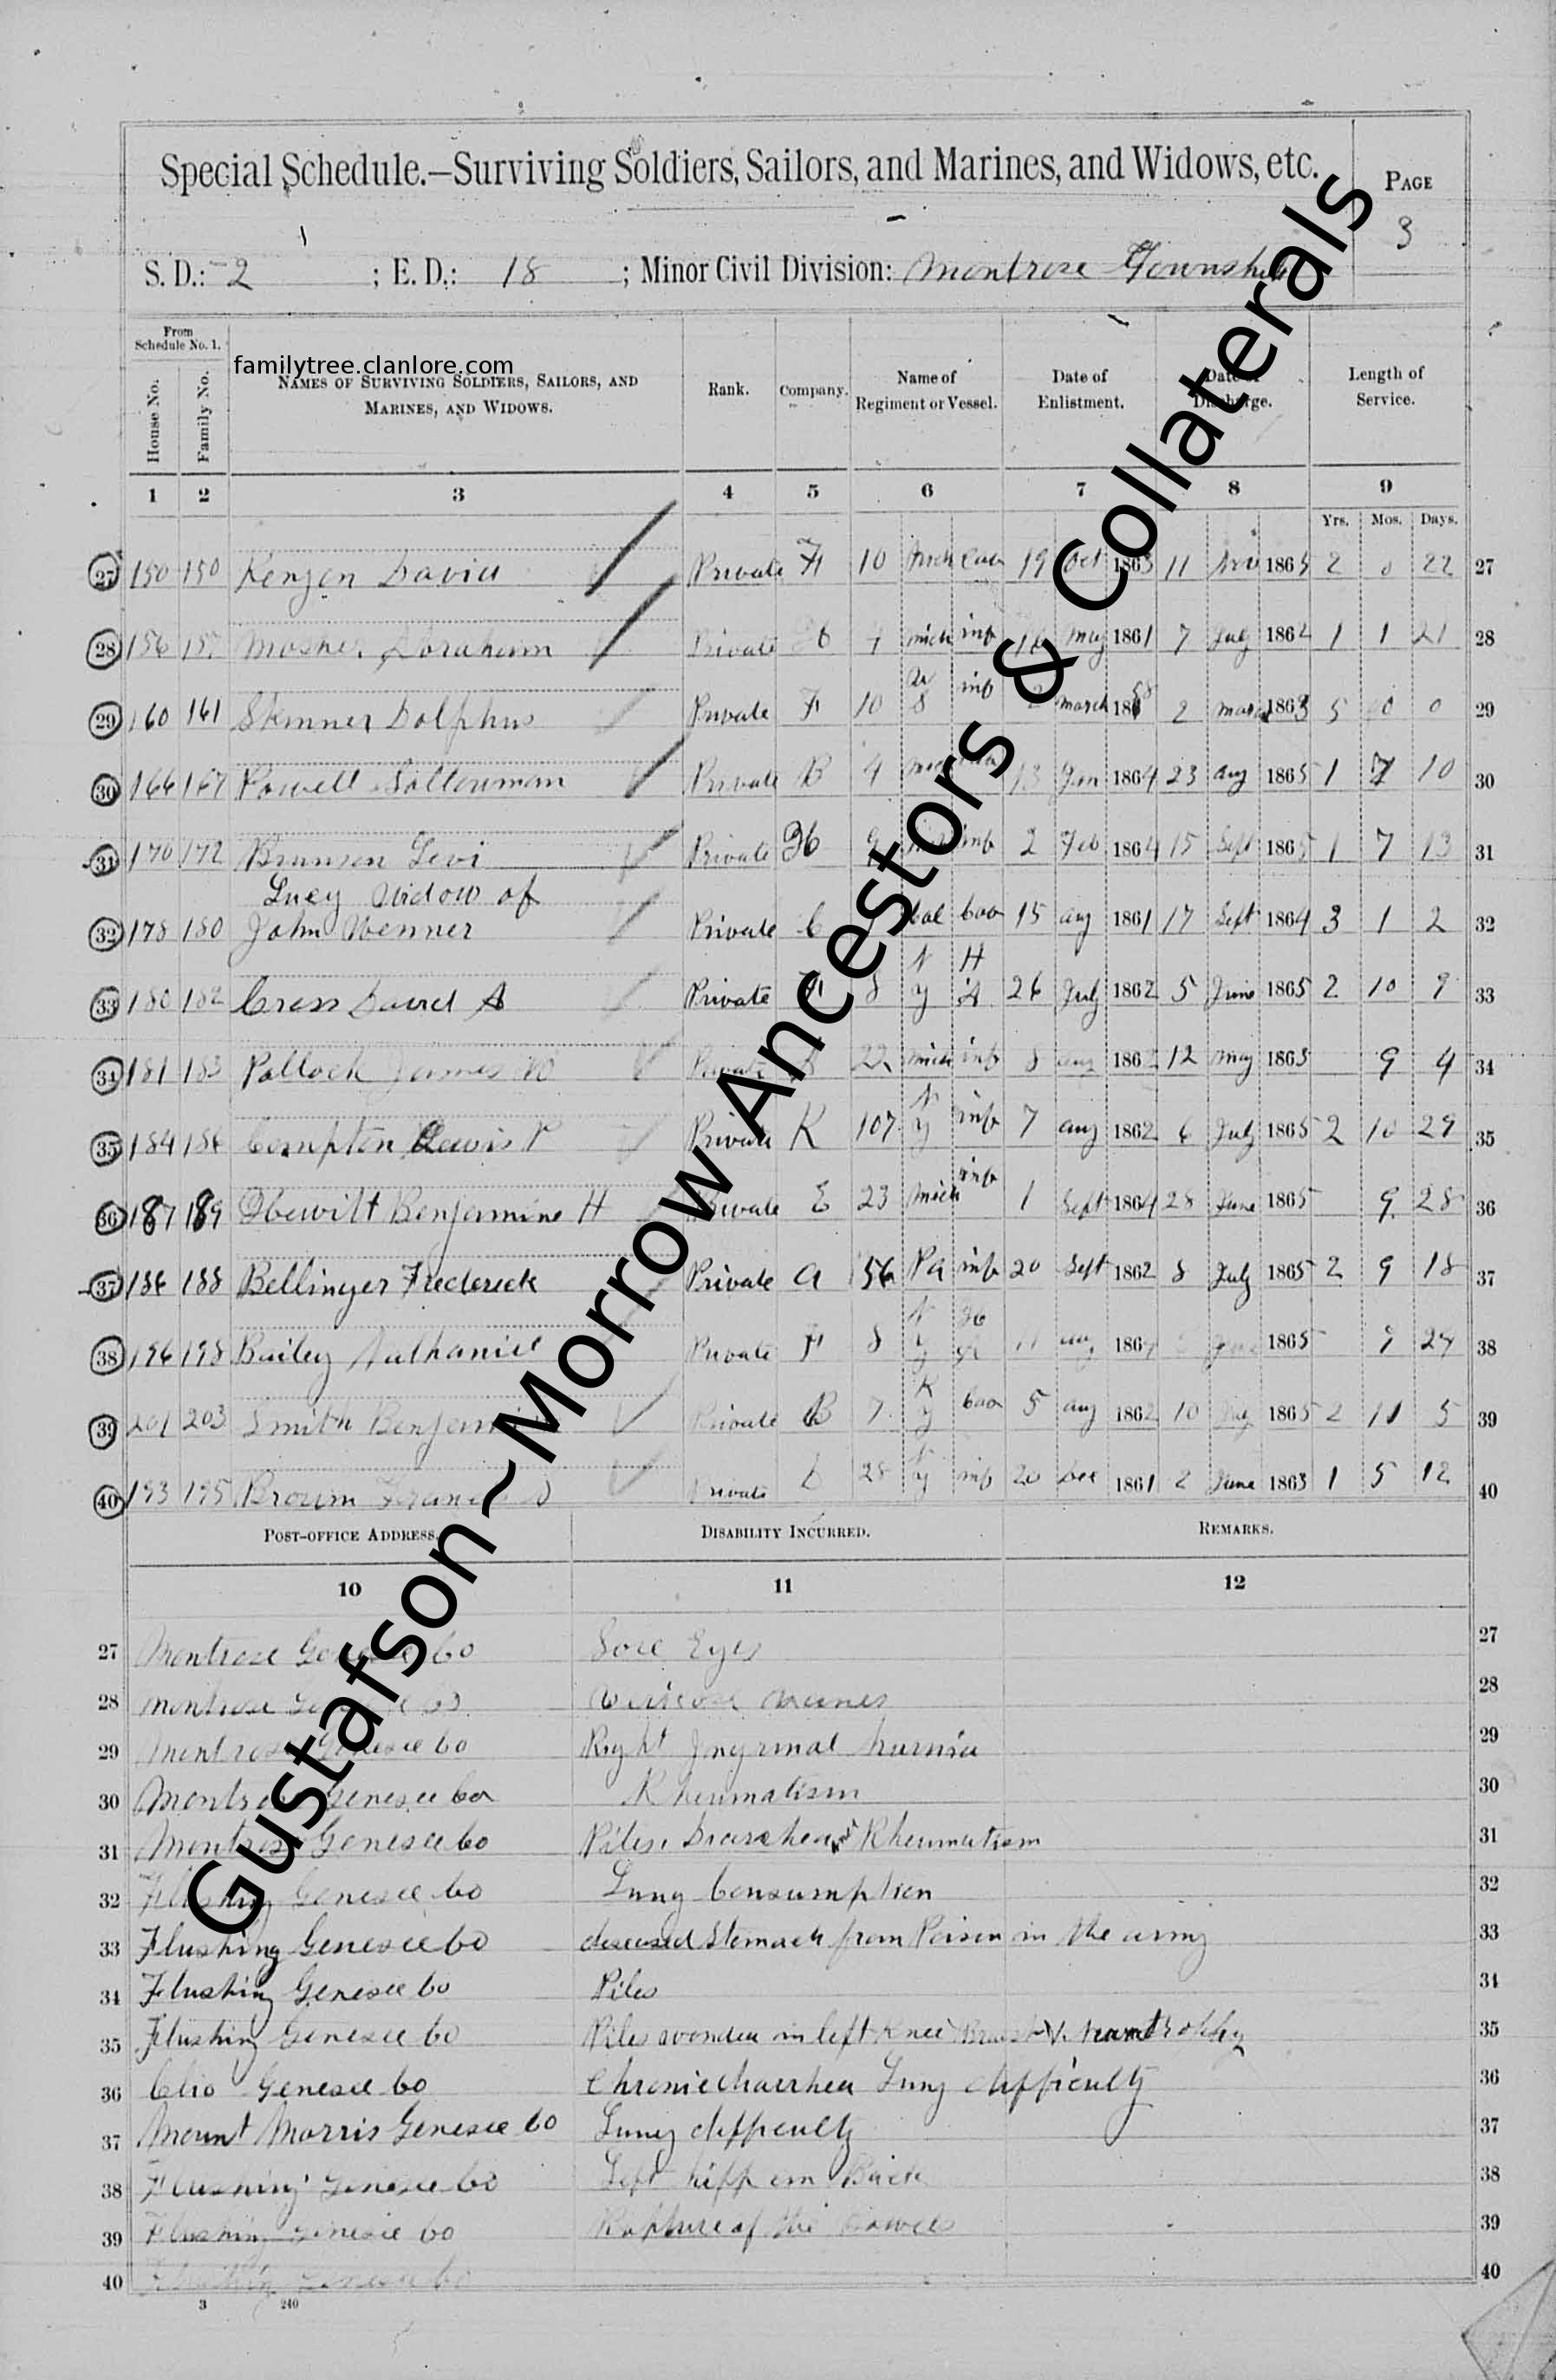 Special Schedule.—Surviving Soldiers, Sailors, and Marines, and Widows, etc.
PAGE
3
S. D.: 2 ; E. D.: 18 ; Minor Civil Division: Montrose Township
From Schedule No. 1.
familytree.clanlore.com
House No. Family No. NAMES OF SURVIVING SOLDIERS, SAILORS, AND MARINES, AND WIDOWS. Rank. Company. Name of Regiment or Vessel. Date of Enlistment. Date of Discharge. Length of Service.
1 2 3 4 5 6 7 8 9
Yrs. Mos. Days.
27 150 150 David Private 10 19 Oct 1863 11 1865 2 0 22 27
28 156 157 Private 7 mich inf may 1861 7 July 1862 1 1 21 28
29 160 161 Skinner Dolphus Private F 10 U S inf 2 march 1858 2 march 1863 5 0 0 29
30 166 167 Powell Private B 4 13 Jan 1864 23 aug 1865 1 7 10 30
31 170 172 Levi Private H inf 2 Feb 1864 15 Sept 1865 1 7 13 31
Lucy Widow of
32 178 180 John Wenner Private C Cal Cav 15 aug 1861 17 Sept 1864 3 1 2 32
33 180 182 Cross David A Private 8 N Y H A 26 July 1862 5 June 1865 2 10 9 33
34 181 183 Pollock James Private 22 mich inf 8 aug 1862 12 may 1863 9 4 34
35 184 186 Compton Lewis P Private K 107 N Y inf 7 aug 1862 6 July 1865 2 10 29 35
36 187 189 Hewitt Benjamine H Private E 23 mich inf 1 Sept 1864 28 June 1865 9 28 36
37 186 188 Bellinger Frederick Private A 56 Pa inf 20 Sept 1862 8 July 1865 2 9 18 37
38 196 198 Bailey Nathaniel Private F 8 N Y H aug June 1865 9 38
39 201 203 Smith Benjamin Private B 7 Cav 5 aug 1862 10 1865 2 11 5 39
40 193 195 Brown Private D 28 N Y inf 20 Dec 1861 2 June 1863 1 5 12 40
POST-OFFICE ADDRESS. DISABILITY INCURRED. REMARKS.
10 11 12
27 Montrose Genesee Co Sore Eyes 27
28 montrose Genesee Co 28
29 Montrose Genesee Co Right 29
30 Montrose Genesee Co Rheumatism 30
31 Montrose Genesee Co Piles Diarrhea and Rheumatism 31
32 Flushing Genesee Co Lung Consumption 32
33 Flushing Genesee Co diseased Stomach from Poison in the army 33
34 Flushing Genesee Co Piles 34
35 Flushing Genesee Co Piles in left Knee 35
36 Clio Genesee Co Lung difficulty 36
37 Mount Morris Genesee Co Lung difficulty 37
38 Flushing Genesee Co Left hipp Back 38
39 Flushing Genesee Co Rupture of the 39
40 Flushing Genesee Co 40
3 240
Gustafson~Morrow Ancestors & Collaterals